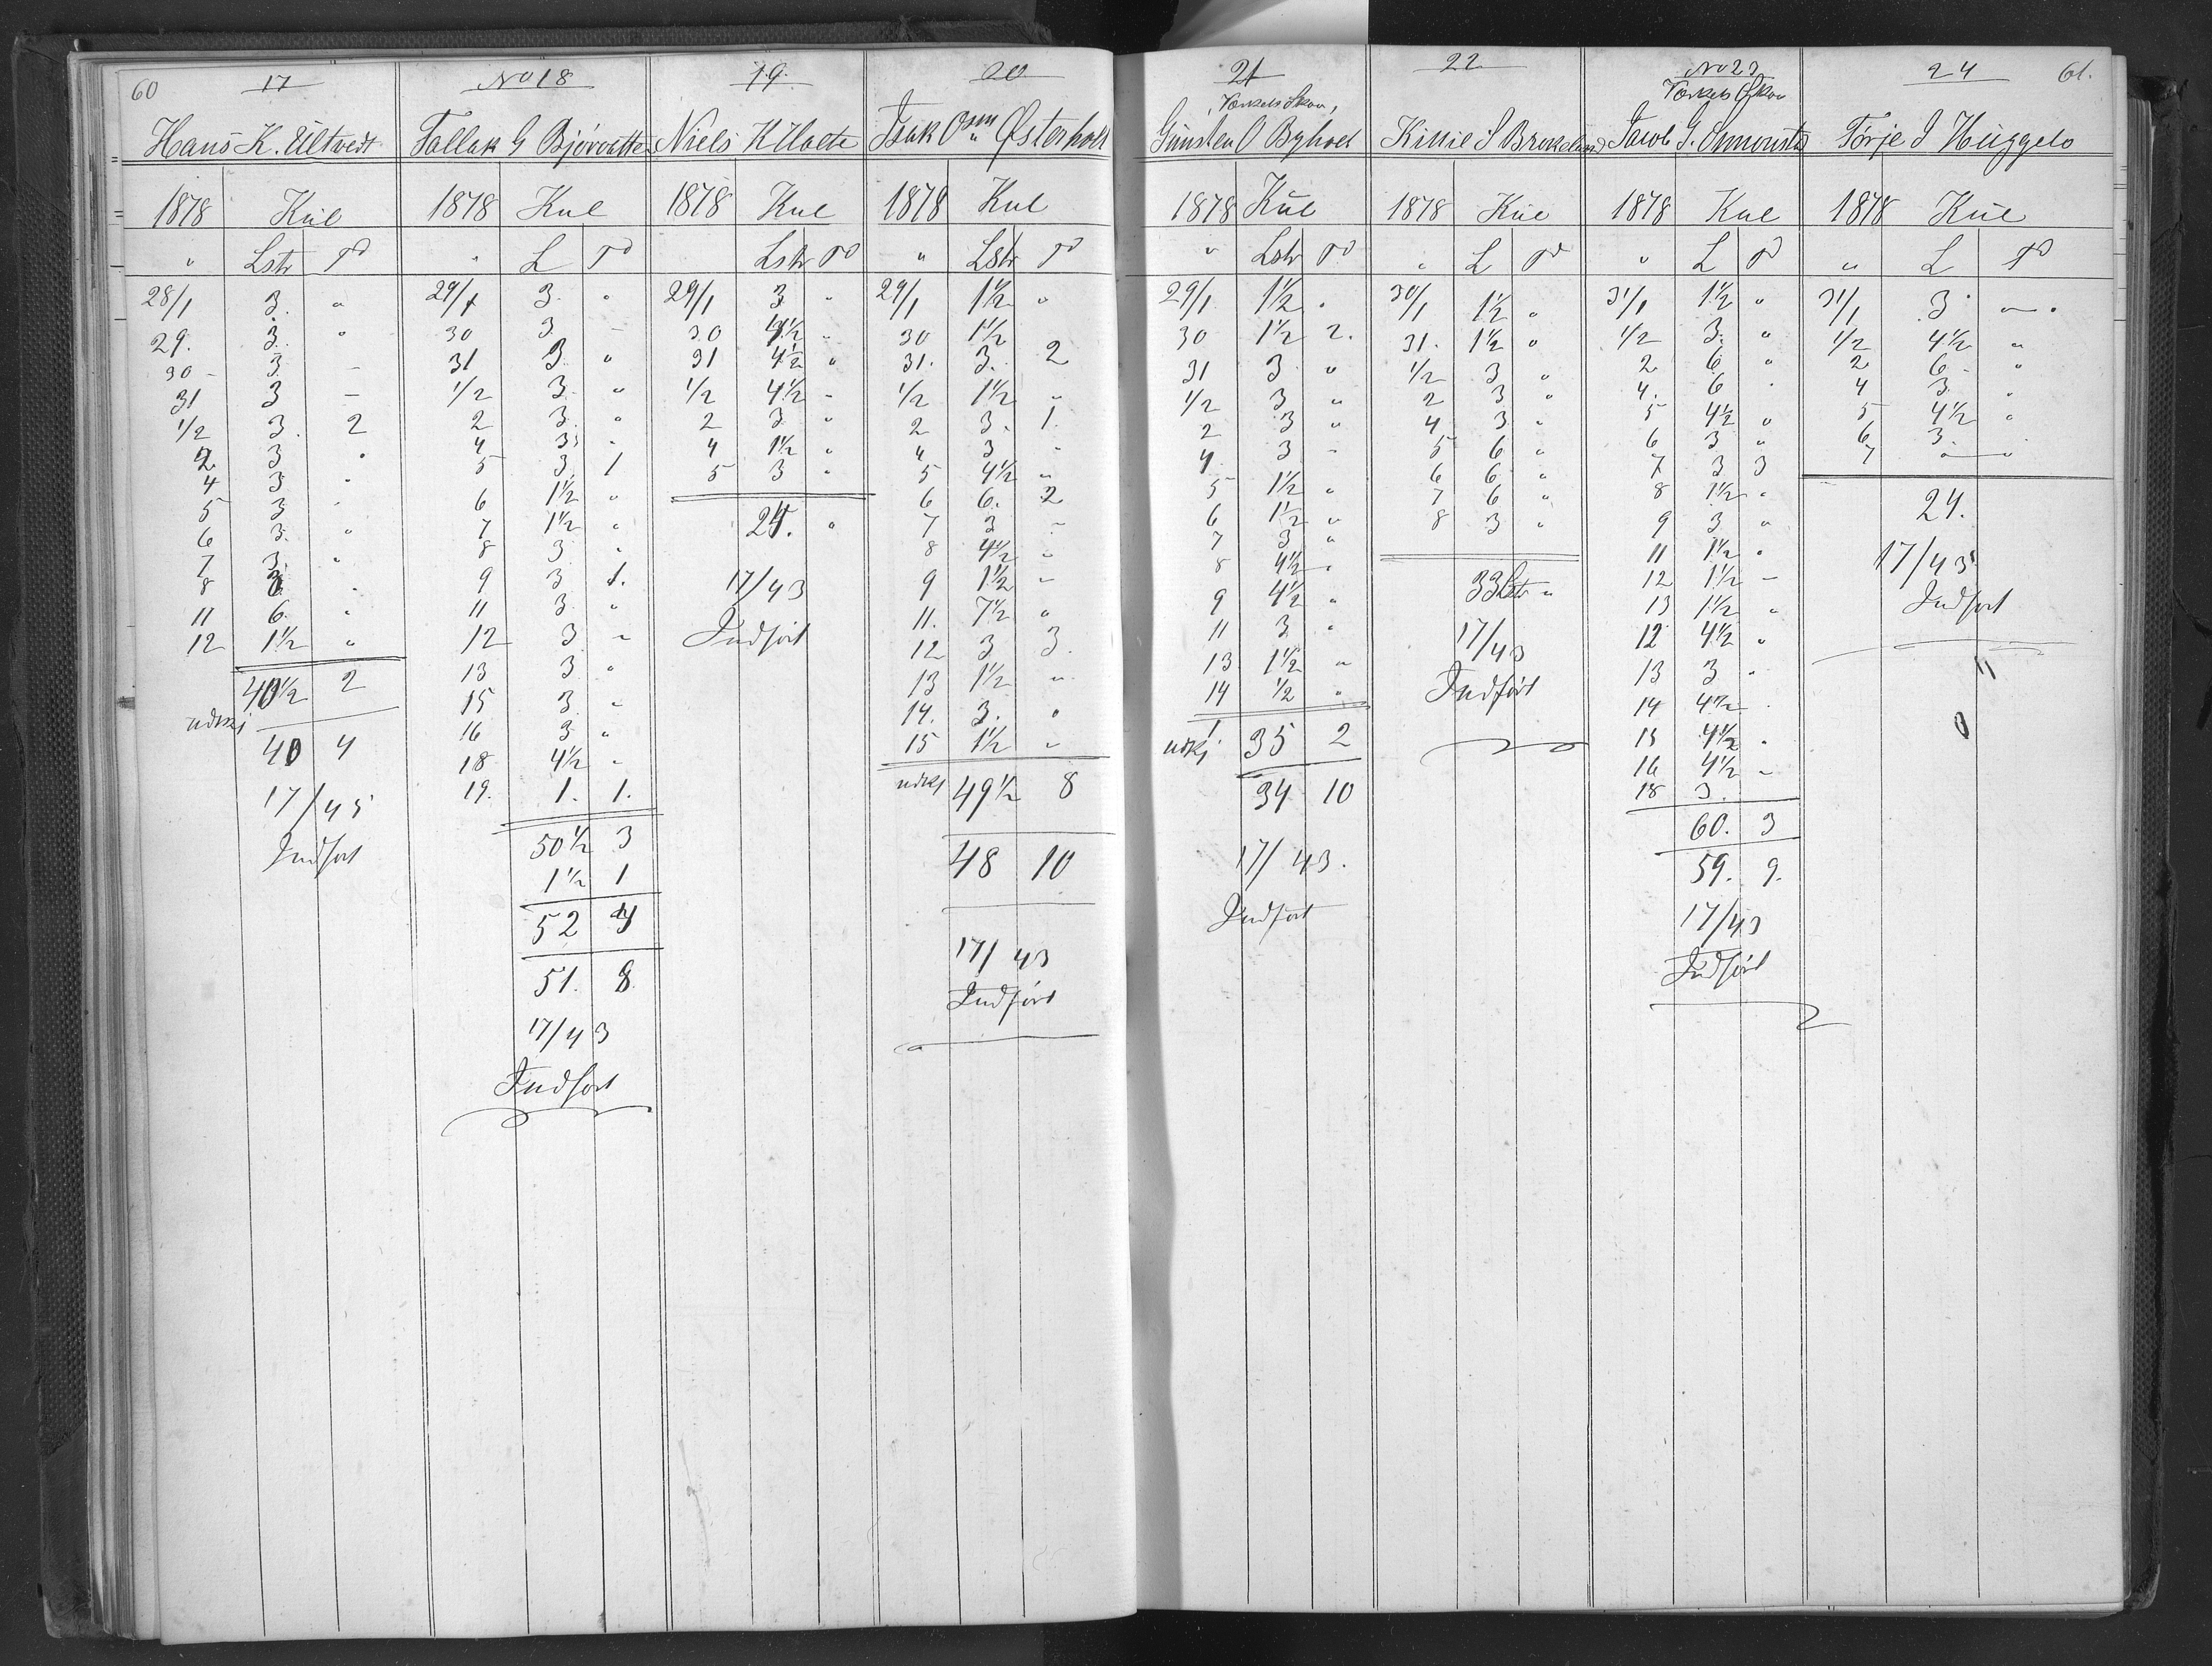 60
17
Hans K. Ultvedt
1878 Kul
" Lstr Td
28/1 3. "
29. 3. "
30 - 3. -
31 3 -
1/2 3. 2
2 3 "
4 3 "
5 3 "
6 3. "
7 3. "
8 3 "
11 6. "
12 1½ "
40½ 2
40 4
17/45
Indført
No 18
Tallak G Bjørvatten
1878 Kul
" L Td
29/1 3. "
30 3. -
31 3. "
1/2 3. "
2 3. "
4 3 "
5 3. 1
6 1½ "
7 1½ "
8 3. "
9 3 1.
11 3. "
12 3. "
13 3. "
15 3. "
16 3 "
18 4½ "
19. 1. 1.
50½ 3
1½ 1
52 4
51. 8
17/43
Indført
19.
Niels K Holte
1878 Kul
Lstr Td
29/1 3 "
30 4½ "
31 4½ "
1/2 4½ "
2 3 "
4 1½ "
5 3 "
24. "
17/43
Indført
20
Isak Osen Østerholt
1878 Kul
" Lstr Td
29/1 1½ "
30 1½
31. 3. 2
1/2 1½ "
2 3. 1.
4 3 "
5 4½ "
6 6. 2
7 3 -
8 4½ "
9 1½ "
11. 7½ "
12 3 3.
13 1½ "
14. 3. "
15 1½ "
udkj 49½ 8
48 10
17/43
Indført
21
Værkets Skov,
Gunsten O Byholt
1878 Kul
" Lstr Td
29/1 1½ "
30 1½ 2.
31 3 "
1/2 3 "
2 3 "
4 3 "
5 1½ "
6 1½ "
7 3 "
8 4½ "
9 4½ "
11 3 "
13 1½ "
14 ½ "
udkj 35 2
34 10
17/43.
Indført
22
Kittil S Brokeland
1878 Kul
" L Td
30/1 1½ "
31. 1½ "
1/2 3 "
2 3 "
4 3 "
5 6 "
6 6 "
7 6 "
8 3 "
33 Lstr "
17/43
Indført
No 23
Værkets Skov
Jacob G.
1878 Kul
" L Td
31/1 1½ "
1/2 3. "
2 6 "
4. 6 "
5 4½ "
6 3 "
7 3 3
8 1½ "
9 3 "
11 1½ "
12 1½ -
13 1½ "
12 4½ "
13 3 "
14 4½ "
15 4½ "
16 4½ "
18 3.
60. 3
59. 9.
17/43
Indført
24
61.
Tørje J Huggelo
1878 Kul
" L Td
31/1 3 "
1/2 4½ "
2 6 - "
4 3 "
5 4½ "
6 3. "
7 " "
24.
17/43
Indført